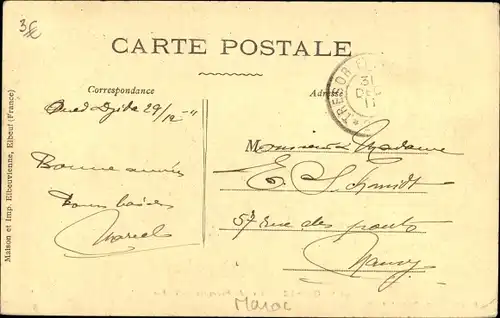 3€
CARTE POSTALE
Correspondance
Adresse
TRESOR
31
DEC
11
Oued Djida 29/12 - 11
Bonne année
Bons baisers
Marcel
Monsieur & Madame
E. Schmidt
57 rue des ponts
Nancy
Maison et Imp. Elbeuvienne, Elbeuf (France)
Maroc